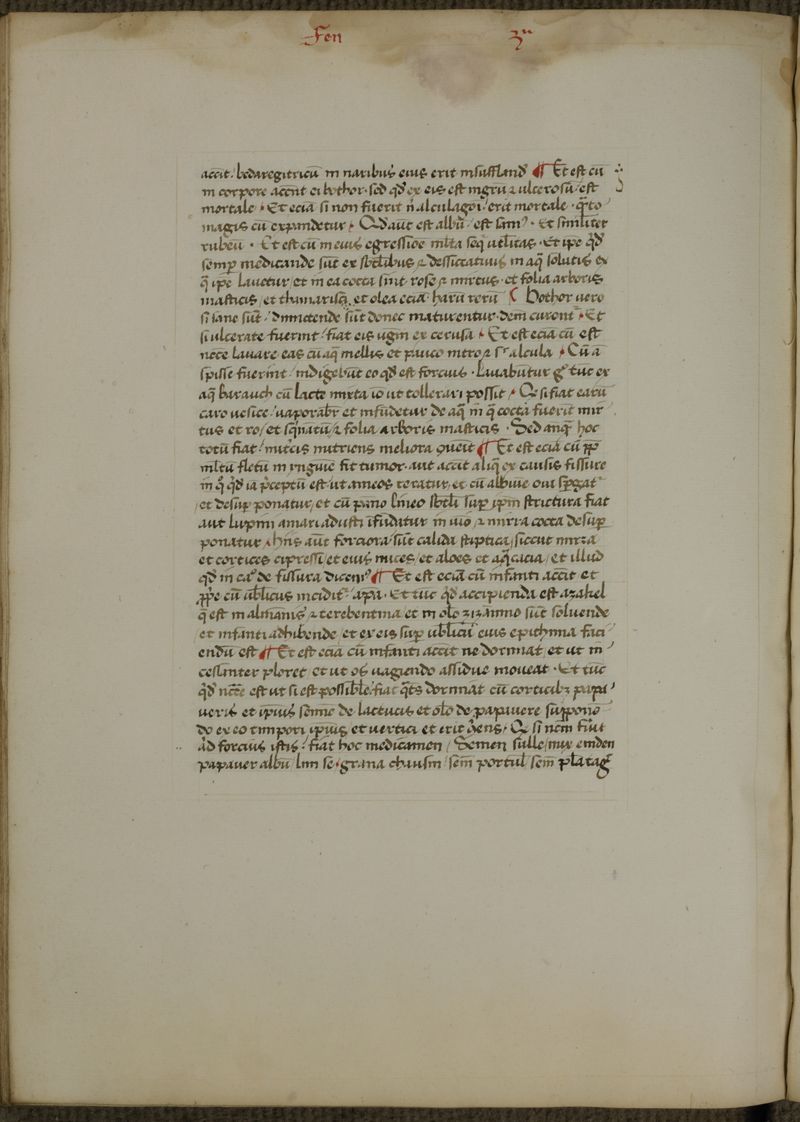 Fen 3ᵃ
accit. bedaregitricũ in naribus eius erit insuffland̃ ¶ Et est cũ
in corpore accnt ei bothor. sed qd̃ ex eis est nigrũ ⁊ ulcerosũ / est
mortale · Et eciã si non fuerit ñ alculagoi / erit mortale · q̃to
magis cũ expandetur · Qd aut est albũ / est · Et similiter
rubeũ · Et est cũ in eius egressiõe ml̃ta seq̃ utl̃itas · Et ipẽ qd̃
semp̃ medicande sũt ex sbtl̃ibus ⁊ dessiccatiuis in aq̃ solutis ex
q̃ ipẽ lauetur / et in ea cocta sint rose ⁊ mirtus · et folia arboris
masticis / et thamarisci, et olea eciã harũ rerũ ( Bothor uero
si sane sũt / dimictende sũt donec maturentur. dein curont · Et
si ulcerate fuerint / fiat eis ugm̃ ex cerusa · Et est eciã cũ est
necẽ lauare eas cũ aq̃ mellis et pauco nitro ⁊ alcula · Cũ ã
spisse fuerint / indigebũt eo qd̃ est forcius · Lauabuntur g̃ tũc ex
aq̃ baurauch cũ lacte mixta iõ ut tollerari possit · Q̃ si fiat earũ
caro uesice / uaporabr̃ et infũdetur de aq̃ in q̃ cocta fuerit mir
tus et ro / et sq̃natũ / ⁊ folia arboris masticis · Sed anq̃ hoc
totũ fiat / nutricis nutriens meliora queñt ¶ Et est eciã cũ pp̃
ml̃tũ fletũ in inguine fit tumor. aut accit aliq̃ ex causis fissure
in q̃ qd̃ ia p̃ceptũ est / ut ameos teratur, et cũ albuĩe oui sp̃gat
et desup̃ ponatur / et cũ pãno lineo sbtl̃i sup̃ ip̃m strictura fiat
aut lupini amari adusti ĩfũdãtur in uio, ⁊ mirra cocta desup̃
ponatur · hiis aũt forciora sũt calida stiptica / siccut mirra
et cortices cipressi / et eius nuces / et aloes et aq̃cicia / et illud
qd̃ in ca° de fissura dicem° ¶ Et est eciã cũ infanti accit et
pp̃e cũ ubl̃icus incidit̃ apa · Et tũc qd̃ accipienda est azahel
q̃ est in almanis ⁊ terebentina / et in olẽo zizanino sũt soluende
et infanti adhibende / et ex eis sup̃ ubl̃icũ eius epithima faci
endũ est ¶ Et est eciã cũ infanti accit ne dormiat, et ut in
cessanter ploret et ut os uagiendo assidue moueat · Et tũc
qd̃ nccẽ est ut si est possibl̃e / fiat q̃ts dormiat cũ corticib⁊ papa
ueris et ip̃ius semĩe de lactucis et olẽo de papauere suppono
do ex eo timpori ip̃ius et uertici et erit q̃ens · Q̃ si nem fiũt
ad forcius istis / fiat hoc medicamen / Semen sulle / nux emden
papauer albũ / lini se · grana chausin / sem̃ portul̃ / sem̃ plãtag̃